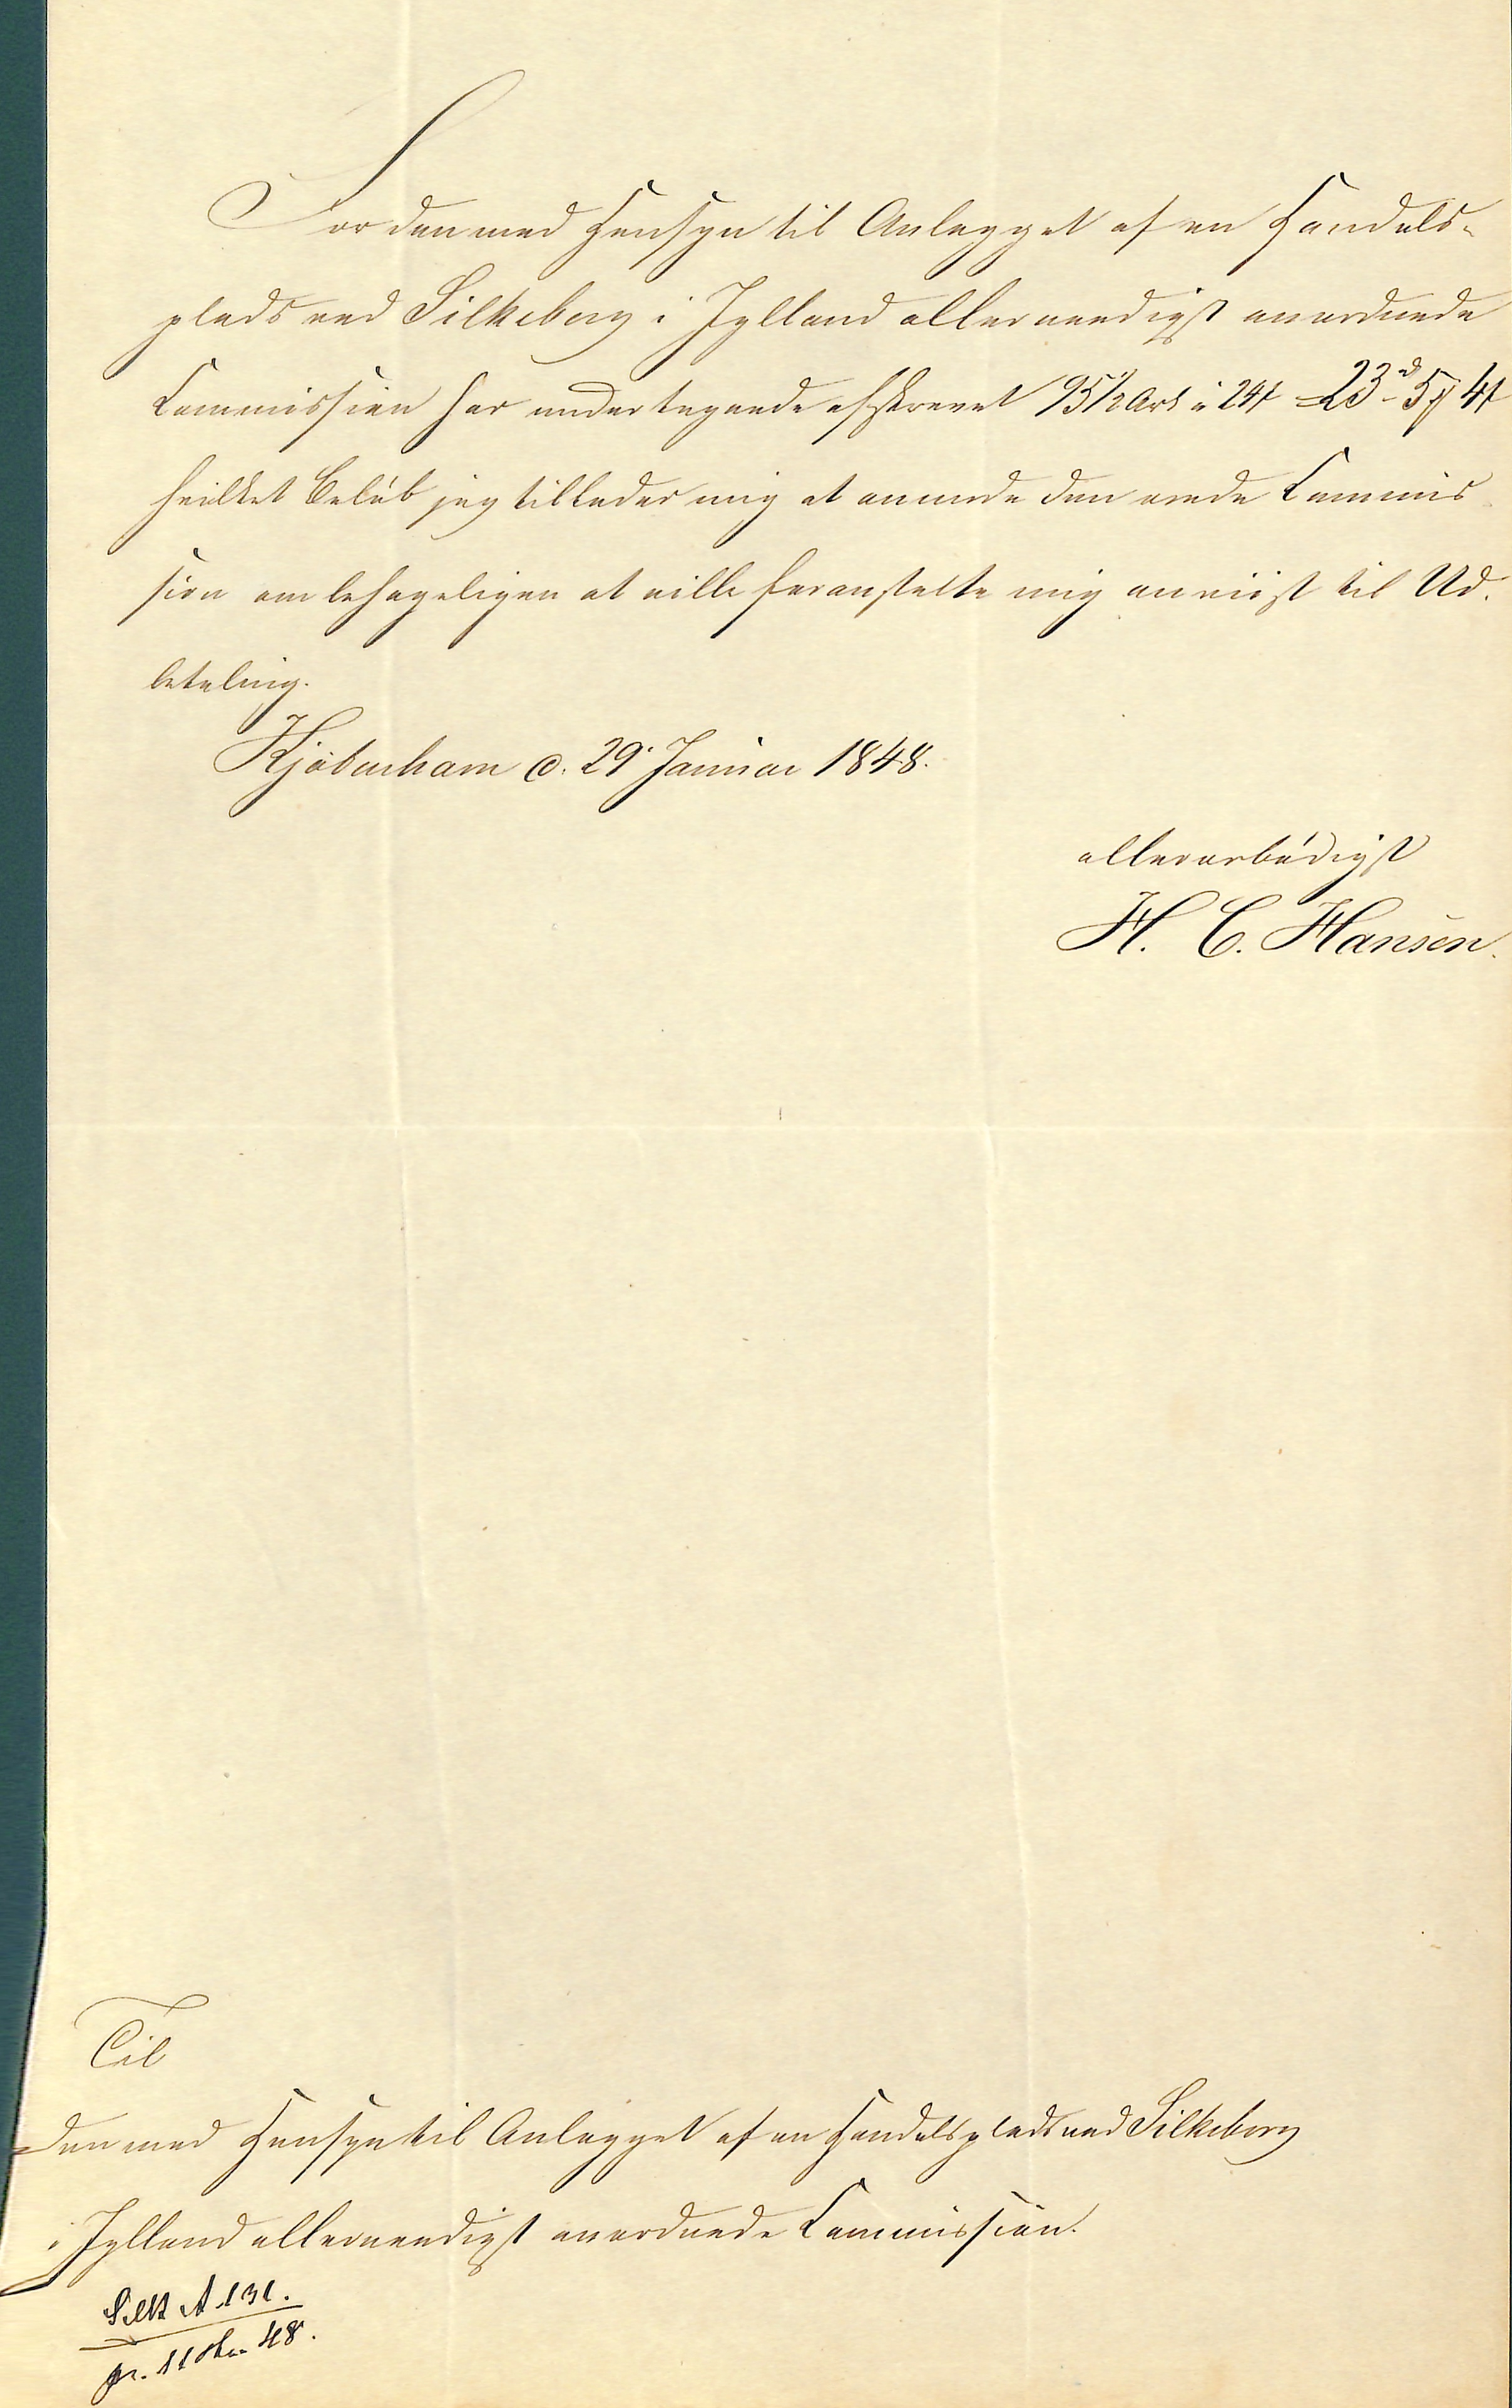 For den med Hensyn til Anlægget af en Handels-
plads ved Silkeborg i Jylland allernaadigst anordnede
Commission har undertegnede afskrevet 95½ Ark à 24 ß = 23 rd - 5 ₰ 4 ß
hvilket Beløb jeg tillader mig at anmode den ærede Commis
sion om behageligen at ville foranstalte mig anviist til Ud-
betaling.
Kjøbenhavn d. 29 Januar 1848.
allerærbødigst
H. C. Hansen.
Til
den med Hensyn til Anlægget af en Handelsplads ved Silkeborg
i Jylland allernaadigst anordnede Commission.
Silk A 131.
pr. 11 48.